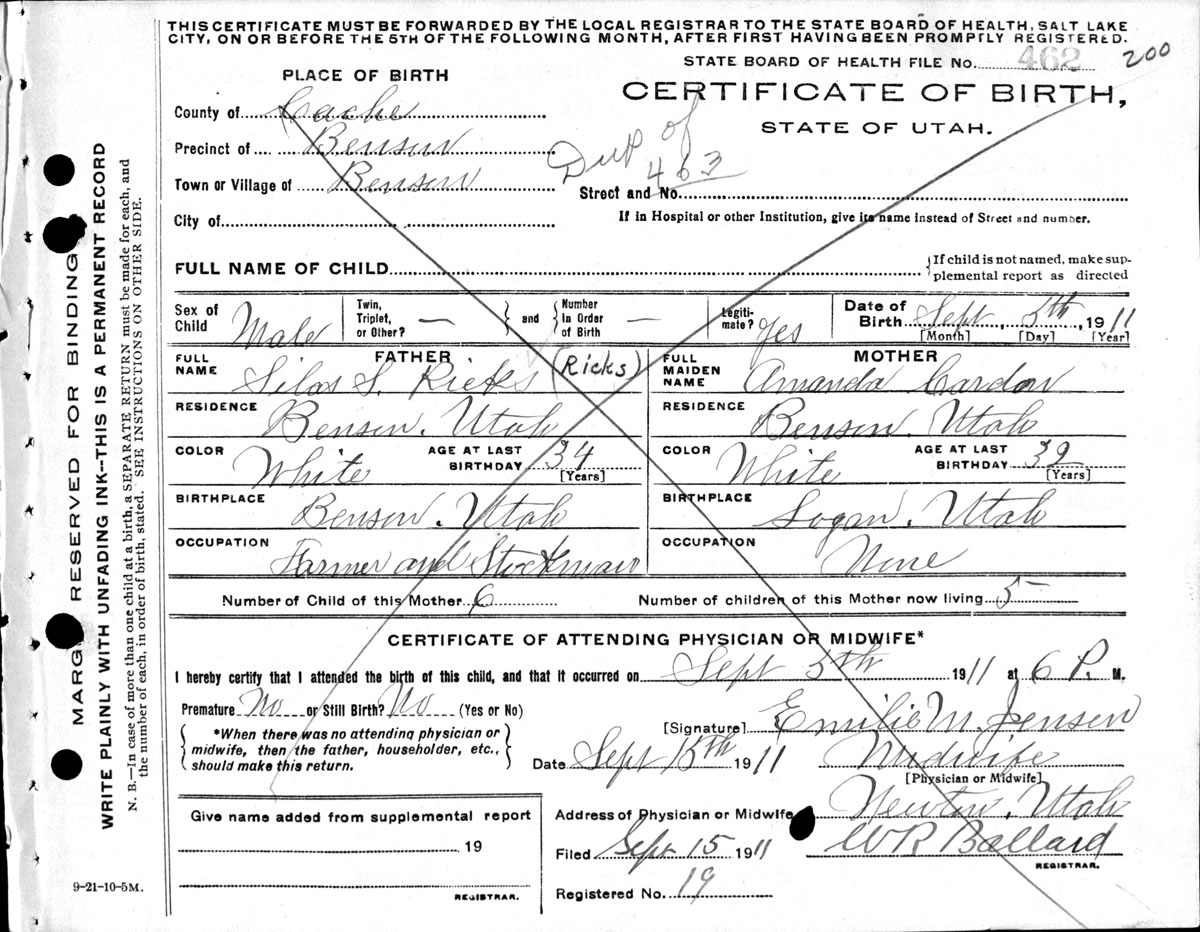 THIS CERTIFICATE MUST BE FORWARDED BY THE LOCAL REGISTRAR TO THE STATE BOARD OF HEALTH, SALT LAKE
CITY, ON OR BEFORE THE 5TH OF THE FOLLOWING MONTH, AFTER FIRST HAVING BEEN PROMPTLY REGISTERED.
STATE BOARD OF HEALTH FILE No. 462 200
PLACE OF BIRTH
CERTIFICATE OF BIRTH,
STATE OF UTAH.
County of Cache
Precinct of Benson
Town or Village of Benson
Dup of
463
Street and No.
City of
If in Hospital or other Institution, give its name instead of Street and number.
FULL NAME OF CHILD
If child is not named, make sup-
plemental report as directed
Sex of Child Male
Twin, Triplet, or Other? —
and
Number In Order of Birth —
Legiti-mate? Yes
Date of Birth Sept, 5th, 1911
[Month] [Day] [Year]
FATHER
FULL NAME Silas S. Ricks (Ricks)
RESIDENCE Benson. Utah
COLOR White
AGE AT LAST BIRTHDAY 34
[Years]
BIRTHPLACE Benson. Utah
OCCUPATION Farmer and Stockman
MOTHER
FULL MAIDEN NAME Amanda Cardon
RESIDENCE Benson. Utah
COLOR White
AGE AT LAST BIRTHDAY 32
[Years]
BIRTHPLACE Logan. Utah
OCCUPATION None
Number of Child of this Mother 6
Number of children of this Mother now living 5
CERTIFICATE OF ATTENDING PHYSICIAN OR MIDWIFE*
I hereby certify that I attended the birth of this child, and that it occurred on Sept 5th 1911 at 6 P. M.
Premature No or Still Birth? No (Yes or No)
*When there was no attending physician or
midwife, then the father, householder, etc.,
should make this return.
[Signature] Emilie M. Jensen
Date Sept 15th 1911
Midwife
[Physician or Midwife]
Address of Physician or Midwife Newton, Utah
Filed Sept 15 1911
WR Ballard
REGISTRAR.
Registered No. 19
Give name added from supplemental report
19
REGISTRAR.
9-21-10-5M.
MARGIN RESERVED FOR BINDING
WRITE PLAINLY WITH UNFADING INK--THIS IS A PERMANENT RECORD
N. B.—In case of more than one child at a birth, a SEPARATE RETURN must be made for each, and
the number of each, in order of birth, stated. SEE INSTRUCTIONS ON OTHER SIDE.